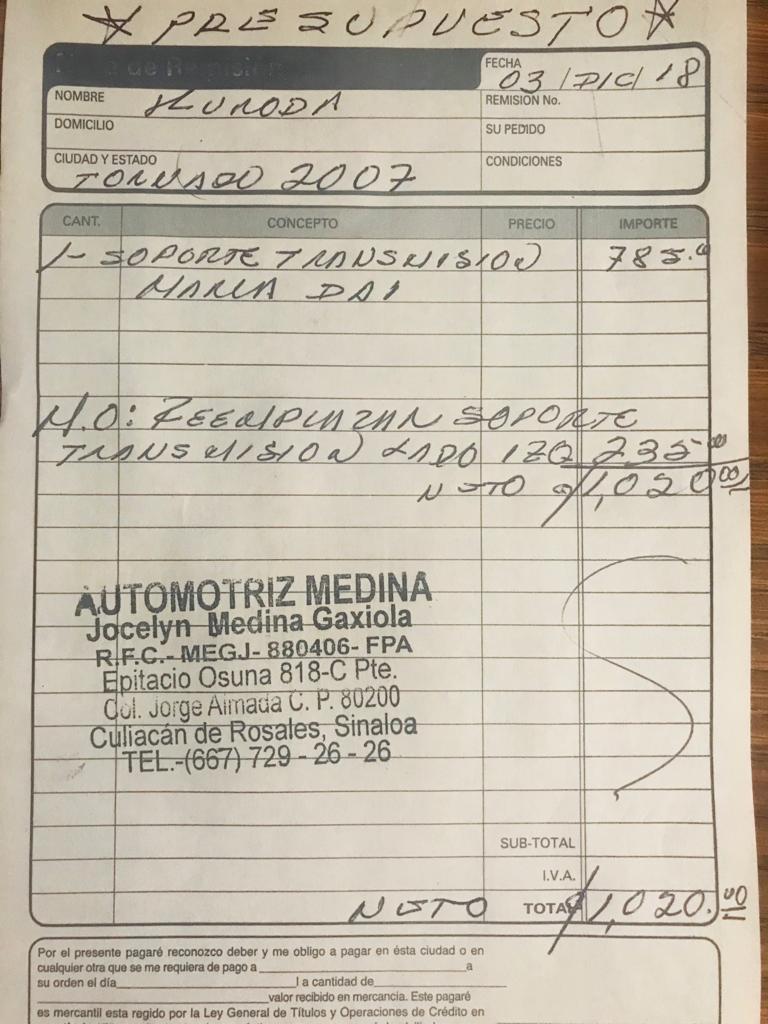 * PRESUPUESTO *
de Remisión
FECHA 03/DIC/18
NOMBRE KURODA
REMISION No.
DOMICILIO
SU PEDIDO
CIUDAD Y ESTADO TORNADO 2007
CONDICIONES
CANT. CONCEPTO PRECIO IMPORTE
1- SOPORTE TRANSMISION 785.00
MARCA DAI
M.O: REEMPLAZAR SOPORTE
TRANSMISION LADO IZQ 235.00
NETO $1,020.00
AUTOMOTRIZ MEDINA
Jocelyn Medina Gaxiola
R.F.C.- MEGJ- 880406- FPA
Epitacio Osuna 818-C Pte.
Col. Jorge Almada C. P. 80200
Culiacán de Rosales, Sinaloa
TEL.-(667) 729 - 26 - 26
SUB-TOTAL
I.V.A.
NETO TOTAL $1,020.00
Por el presente pagaré reconozco deber y me obligo a pagar en ésta ciudad o en
cualquier otra que se me requiera de pago a a
su orden el día la cantidad de
valor recibido en mercancia. Este pagaré
es mercantil esta regido por la Ley General de Títulos y Operaciones de Crédito en